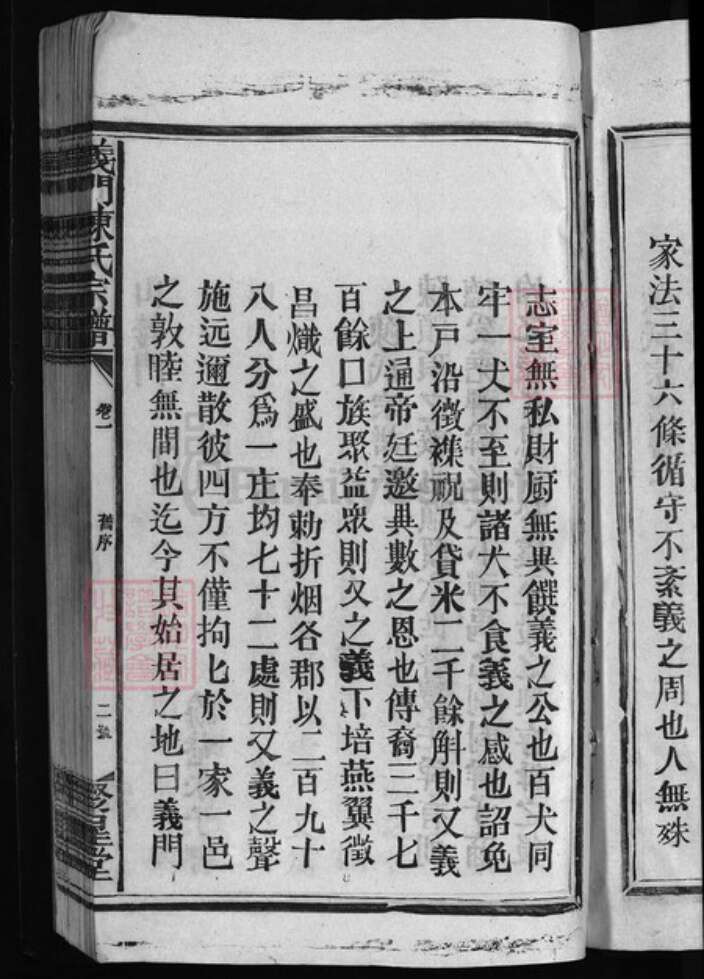 家法三十六條循守不紊義之周也人無殊
志室無私財厨無異饌義之公也百犬同
牢一犬不至則諸犬不食義之感也詔免
本戶沿徵襍祝及貸米二千餘斛則又義
之上通帝廷邀異數之恩也傳裔三千七
百餘口族聚益衆則又之義下培燕翼徵
昌熾之盛也奉勅折烟各郡以二百九十
八人分爲一庄均七十二處則又義之聲
施远邇散彼四方不僅拘匕於一家一邑
之敦睦無間也迄今其始居之地曰義門
義門陳氏宗譜
卷一
舊序
二
聚星堂